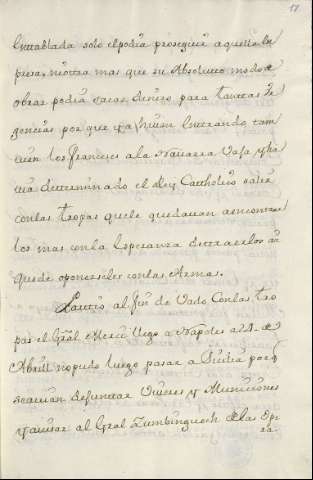 17
Entablada solo el podia proseguir aquella em
presa, mientra mas que su Absoluto modo de
obrar podia sacar dinero para tantas ur
gencias por que ya havian Entrando tam
uien los franceses a la Navarra Vaja y ha
uia determinado el Rey Catholico salir
con las tropas que le quedauan a encontrar
los mas con la Esperanza de traerlos
que de oponerseles con las Armas.
Partio al fin de Vado Con las tro
pas el Gral Merci llego a Napoles a 24 de
Abrill no pudo luego pasar a Sicilia por q
Viueres y Municiones
y auisar al Gral Zumbingueh de las Ope
ra